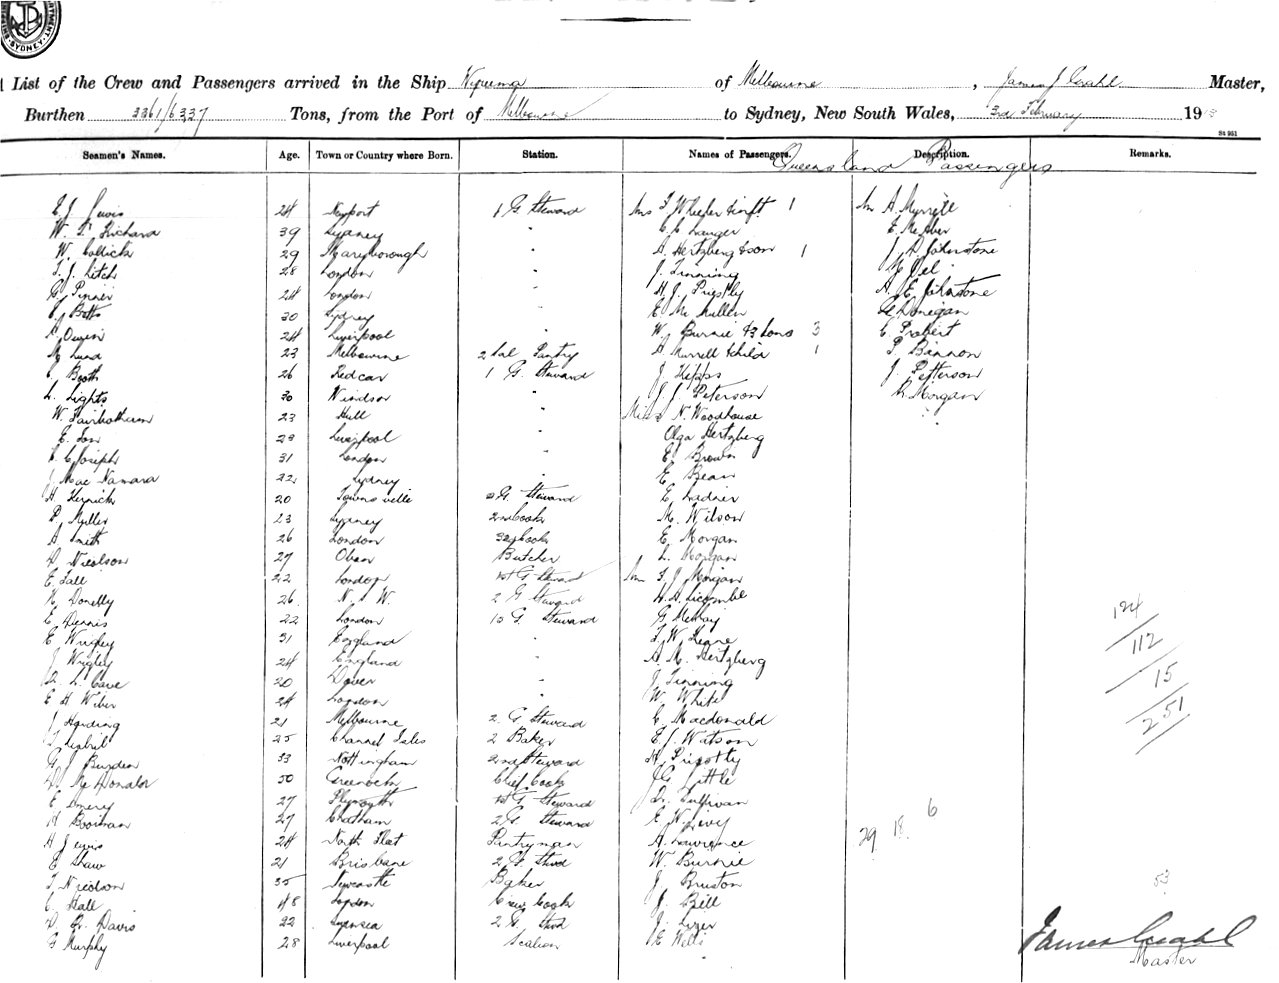 SYDNEY
List of the Crew and Passengers arrived in the Ship Wyreema of Melbourne, James J Grahl Master,
Burthen 3361/6337 Tons, from the Port of Melbourne to Sydney, New South Wales, 3rd February 1913
St 951
Seamen's Names. Age. Town or Country where Born. Station. Names of Passengers. Description. Remarks.
Queensland Passengers
E. J. Lewis 24 Newport 1 G Steward Mrs T Wheeler & inft 1 Mr A. Myrrell
W. F. Richard 39 Sydney " C. C. Langer E. McAber
W. Collick 29 Maryborough " A. Hertzberg & son 1 J A Johnstone
T. J. Litch 28 London " J. Tinning
G. Pinner 24 London " H. J. Priestly A. E. Johnstone
Botts 30 Sydney " E. McMullen G Donegan
Owen 24 Liverpool " W. Burnie & 3 sons 3 E Probert
Lund 23 Melbourne 2 Sal Pantry A Murrell & child 1 P Bannon
Booth 26 Redcar 1 G. Steward J Hipps J. Petterson
L. Lights 30 Windsor " J J Peterson R Morgan
W. Fairbotham 23 Hull " Miss N. Woodhouse
E. Fox 28 Liverpool " Olga Hertzberg
C Joseph 31 London " E. Brown
J MacNamara 22 Sydney " E Bean
A Kernick 20 Townsville 2 G. Steward E. Ladner
P. Muller 23 Sydney 2nd Cook M. Wilson
A Smith 26 London 3rd Cook E. Morgan
D. Nicolson 27 Oban Butcher L. Morgan
E. Tall 22 London 1st G Steward Mr T. J Morgan
K Donelly 26 N. S. W. 2 G Steward H. A. Licombe
E. Dennis 22 London 1s G. Steward G Murray
E Wrigley 31 England " T. W. Keane
J Wrigley 24 England " A. M. Hertzberg
L. Cave 20 Dover " J Tinning
E H Wiber 24 London " W. White
J Harding 21 Melbourne 2. G Steward C. Macdonald
25 Channel Isles 2 Baker E. J. Watson
G J Burden 33 Nottingham 2nd Steward H. Priestly
D. McDonald 50 Greenock Chief Cook J G Little
E Emery 27 Plymouth 1st G Steward Dr. Sullivan
H Boorman 27 Chatham 2 G. Steward E W Levy
A Lewis 24 North Fleet Pantryman A. Lawrence
E Shaw 21 Brisbane 2 G. Stwd W. Burnie
T Nicolson 35 Newcastle Baker J Bruston
C. Hall 48 London Crew Cook J. Bell
D. R. Davis 22 Swansea 2 G. Stwd J.
G Murphy 28 Liverpool Scullion E Wells
124
112
15
251
29 18 6
53
James J Grahl
Master